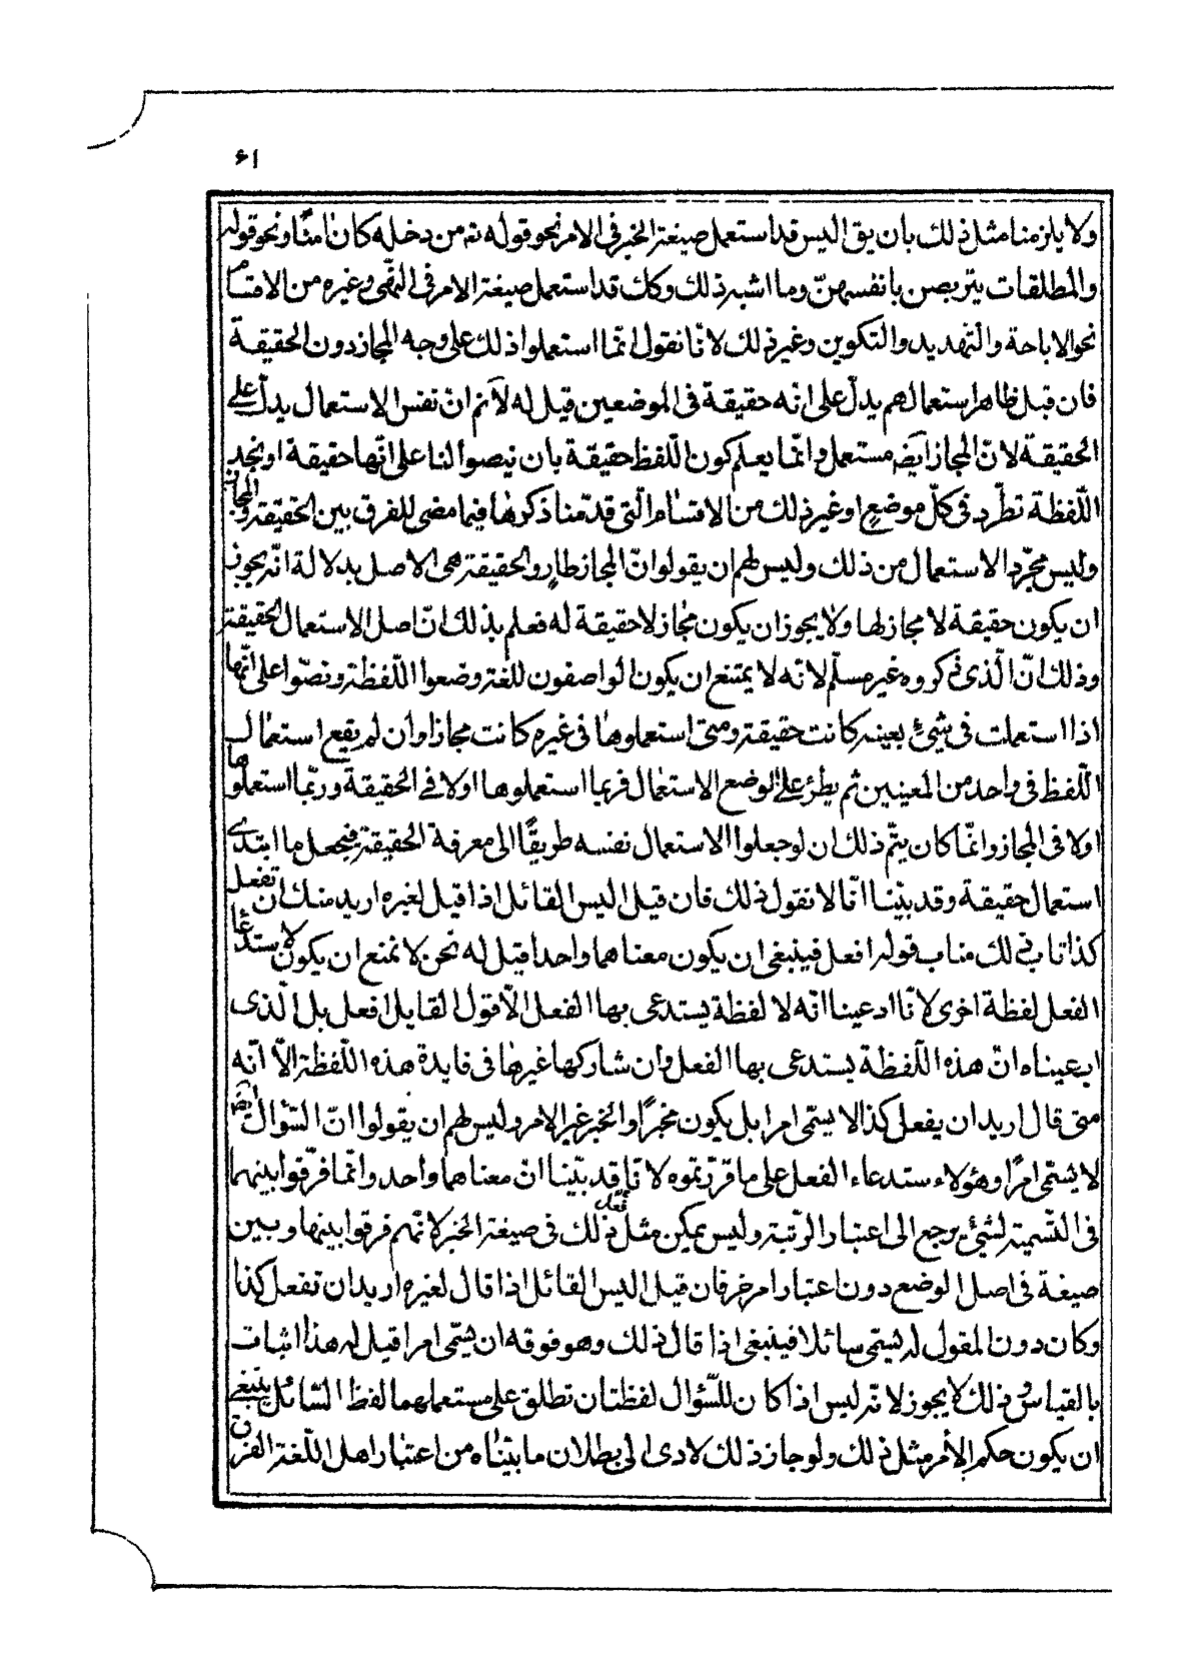 ٦١
ولا يلزمنا مثل ذلك بان يق اليس قد استعمل صيغة الخبر فى الامر نحو قوله ته من دخله كان امنًا ونحو قوله
والمطلقات يتربصن بانفسهنّ وما اشبه ذلك وكك قد استعمل صيغة الامر فى النهى وغيره من الاقسام
نحو الاباحة والتهديد والتكوين وغير ذلك لانّا نقول انّما استعملوا ذلك على وجه المجاز دون الحقيقة
فان قيل ظاهر استعمالهم يدلّ على انّه حقيقة فى الموضعين قيل له لانم انّ نفس الاستعمال يدلّ على
الحقيقة لانّ المجاز ايضه مستعمل وانّما يعلم كون اللّفظ حقيقة بان ينصوا لنا على انّها حقيقة او نجد
اللّفظة تطّرد فى كلّ موضعٍ او غير ذلك من الاقسام الّتى قدّمنا ذكرها فيما مضى للفرق بين الحقيقة والمجاز
وليس مجرّد الاستعمال من ذلك وليس لهم ان يقولوا انّ المجاز طارٍ والحقيقة هى الاصل بدلالة انّه يجوز
ان يكون حقيقة لا مجاز لها ولا يجوز ان يكون مجاز لا حقيقة له فعلم بذلك انّ اصل الاستعمال الحقيقة
وذلك انّ الّذى ذكروه غير مسلّم لانّه لا يمتنع ان يكون الواضعون للّغة وضعوا اللّفظة ونصّوا على انّها
اذا استعملت فى شيئ بعينه كانت حقيقة ومتى استعملوها فى غيره كانت مجازا وان لم يقع استعمال
اللّفظ فى واحد من المعنيين ثم يطرء على الوضع الاستعمال فربما استعملوها اولا فى الحقيقة وربّما استعملوها
اولا فى المجاز وانّما كان يتمّ ذلك ان لو جعلوا الاستعمال نفسه طريقًا الى معرفة الحقيقة فيجعل ما ابتدى
استعمال حقيقة وقد بيّنا انّا لا نقول ذلك فان قيل اليس القائل اذا قيل لغيره اريد منك ان تفعل
كذا ناب ذلك مناب قوله افعل فينبغى ان يكون معناهما واحدا قيل له نحن لا نمنع ان يكون لاستدعا
الفعل لفظة اخرى لانّا ادعينا انّه لا لفظة يستدعى بها الفعل الّا قول القايل افعل بل الّذى
ادعيناه انّ هذه اللّفظة يستدعى بها الفعل وان شاركها غيرها فى فايدة هذه اللّفظة الّا انّه
متى قال اريد ان يفعل كذا لا يسمّى امرا بل يكون مخبرًا والخبر غير الامر وليس لهم ان يقولوا انّ السّؤال ايضه
لا يسمّى امرًا وهؤلاء ستدعاء الفعل على ما قرّرتموه لانّا قد بيّنا انّ معناهما واحد وانّما فرّقوا بينهما
فى التّسمية لشيئ يرجع الى اعتبار الرّتبة وليس يمكن مثل ذلك فى صيغة الخبر لانّهم فرقوا بينها وبين
صيغة فى اصل الوضع دون اعتبار امر خر فان قيل اليس القائل اذا قال لغيره اريد ان تفعل كذا
وكان دون المقول له يسمّى سائلا فينبغى اذا قال ذلك وهو فوقه ان يسمّى امرا قيل له هذا اثبات
بالقياس وذلك لا يجوز لانّه ليس اذا كان للسّؤال لفظتان تطلق على مستعملهما لفظ السّائل ينبغى
ان يكون حكم الأمر مثل ذلك ولو جاز ذلك لادى الى بطلان ما بيّناه من اعتبار اهل اللّغة الفرق